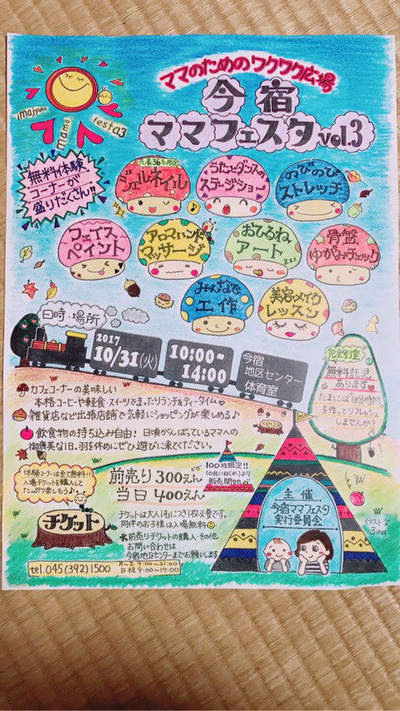 ママのためのワクワク広場
imajyuku
mama
festa3
今宿
ママフェスタvol.3
無料体験
コーナーが
盛りだくさん!!
ジェルネイル
うたとダンスの
ステージショー
のびのび
ストレッチ
フェイス
ペイント
アロマハンド
マッサージ
おひるね
アート
骨盤
ゆがみチェック
みんなで
工作
美容メイク
レッスン
日時・場所
2017
10/31(火)
10:00~
14:00
今宿
地区センター
体育室
完全別室
無料託児
あります
たまには自分時間
を作ってリフレッシュ
しませんか?
カフェコーナーの美味しい
本格コーヒーや軽食・スイーツで、まったりランチ&ティータイム
雑貨店など出張店舗で気軽にショッピングが楽しめる♪
飲食物の持ち込み自由! 日頃がんばっているママへの
御褒美な1日、羽を休めにぜひ遊びに来てください。
体験コーナーは全て無料!!
入場チケットを購入して
たっぷり楽しもう♪
チケット
前売り 300えん
当日 400えん
100枚限定!!
チケットは大人1名につき1枚必要です。
同伴のお子様は入場無料
※前売りチケットの購入・その他
お問い合わせは
今宿地区センターまでお願いします
主催
今宿ママフェスタ
実行委員会
tel.045(392)1500
月~土 9:00~21:00
日・祝 9:00~17:00